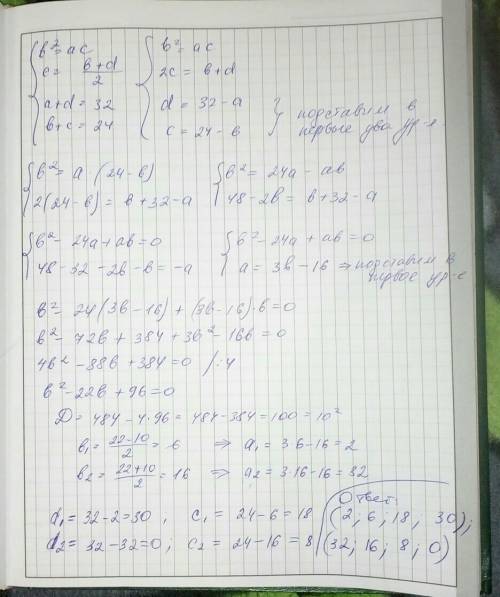 b² = ac
c = b+d/2
a+d = 32
b+c = 24
b² = ac
2c = b+d
d = 32 - a
c = 24 - b
} подставим в
первые два ур-я
b² = a (24 - b)
2(24 - b) = b + 32 - a
b² = 24a - ab
48 - 2b = b + 32 - a
b² - 24a + ab = 0
48 - 32 - 2b - b = -a
b² - 24a + ab = 0
a = 3b - 16 ⇒ подставим в
первое ур-е
b² - 24(3b - 16) + (3b - 16)·b = 0
b² - 72b + 384 + 3b² - 16b = 0
4b² - 88b + 384 = 0 /:4
b² - 22b + 96 = 0
D = 484 - 4·96 = 484 - 384 = 100 = 10²
b₁ = 22-10/2 = 6 ⇒ a₁ = 3 6 - 16 = 2
b₂ = 22+10/2 = 16 ⇒ a₂ = 3·16 - 16 = 32
d₁ = 32 - 2 = 30 , c₁ = 24 - 6 = 18
d₂ = 32 - 32 = 0 ; c₂ = 24 - 16 = 8
Ответ:
(2; 6; 18; 30);
(32; 16; 8; 0)